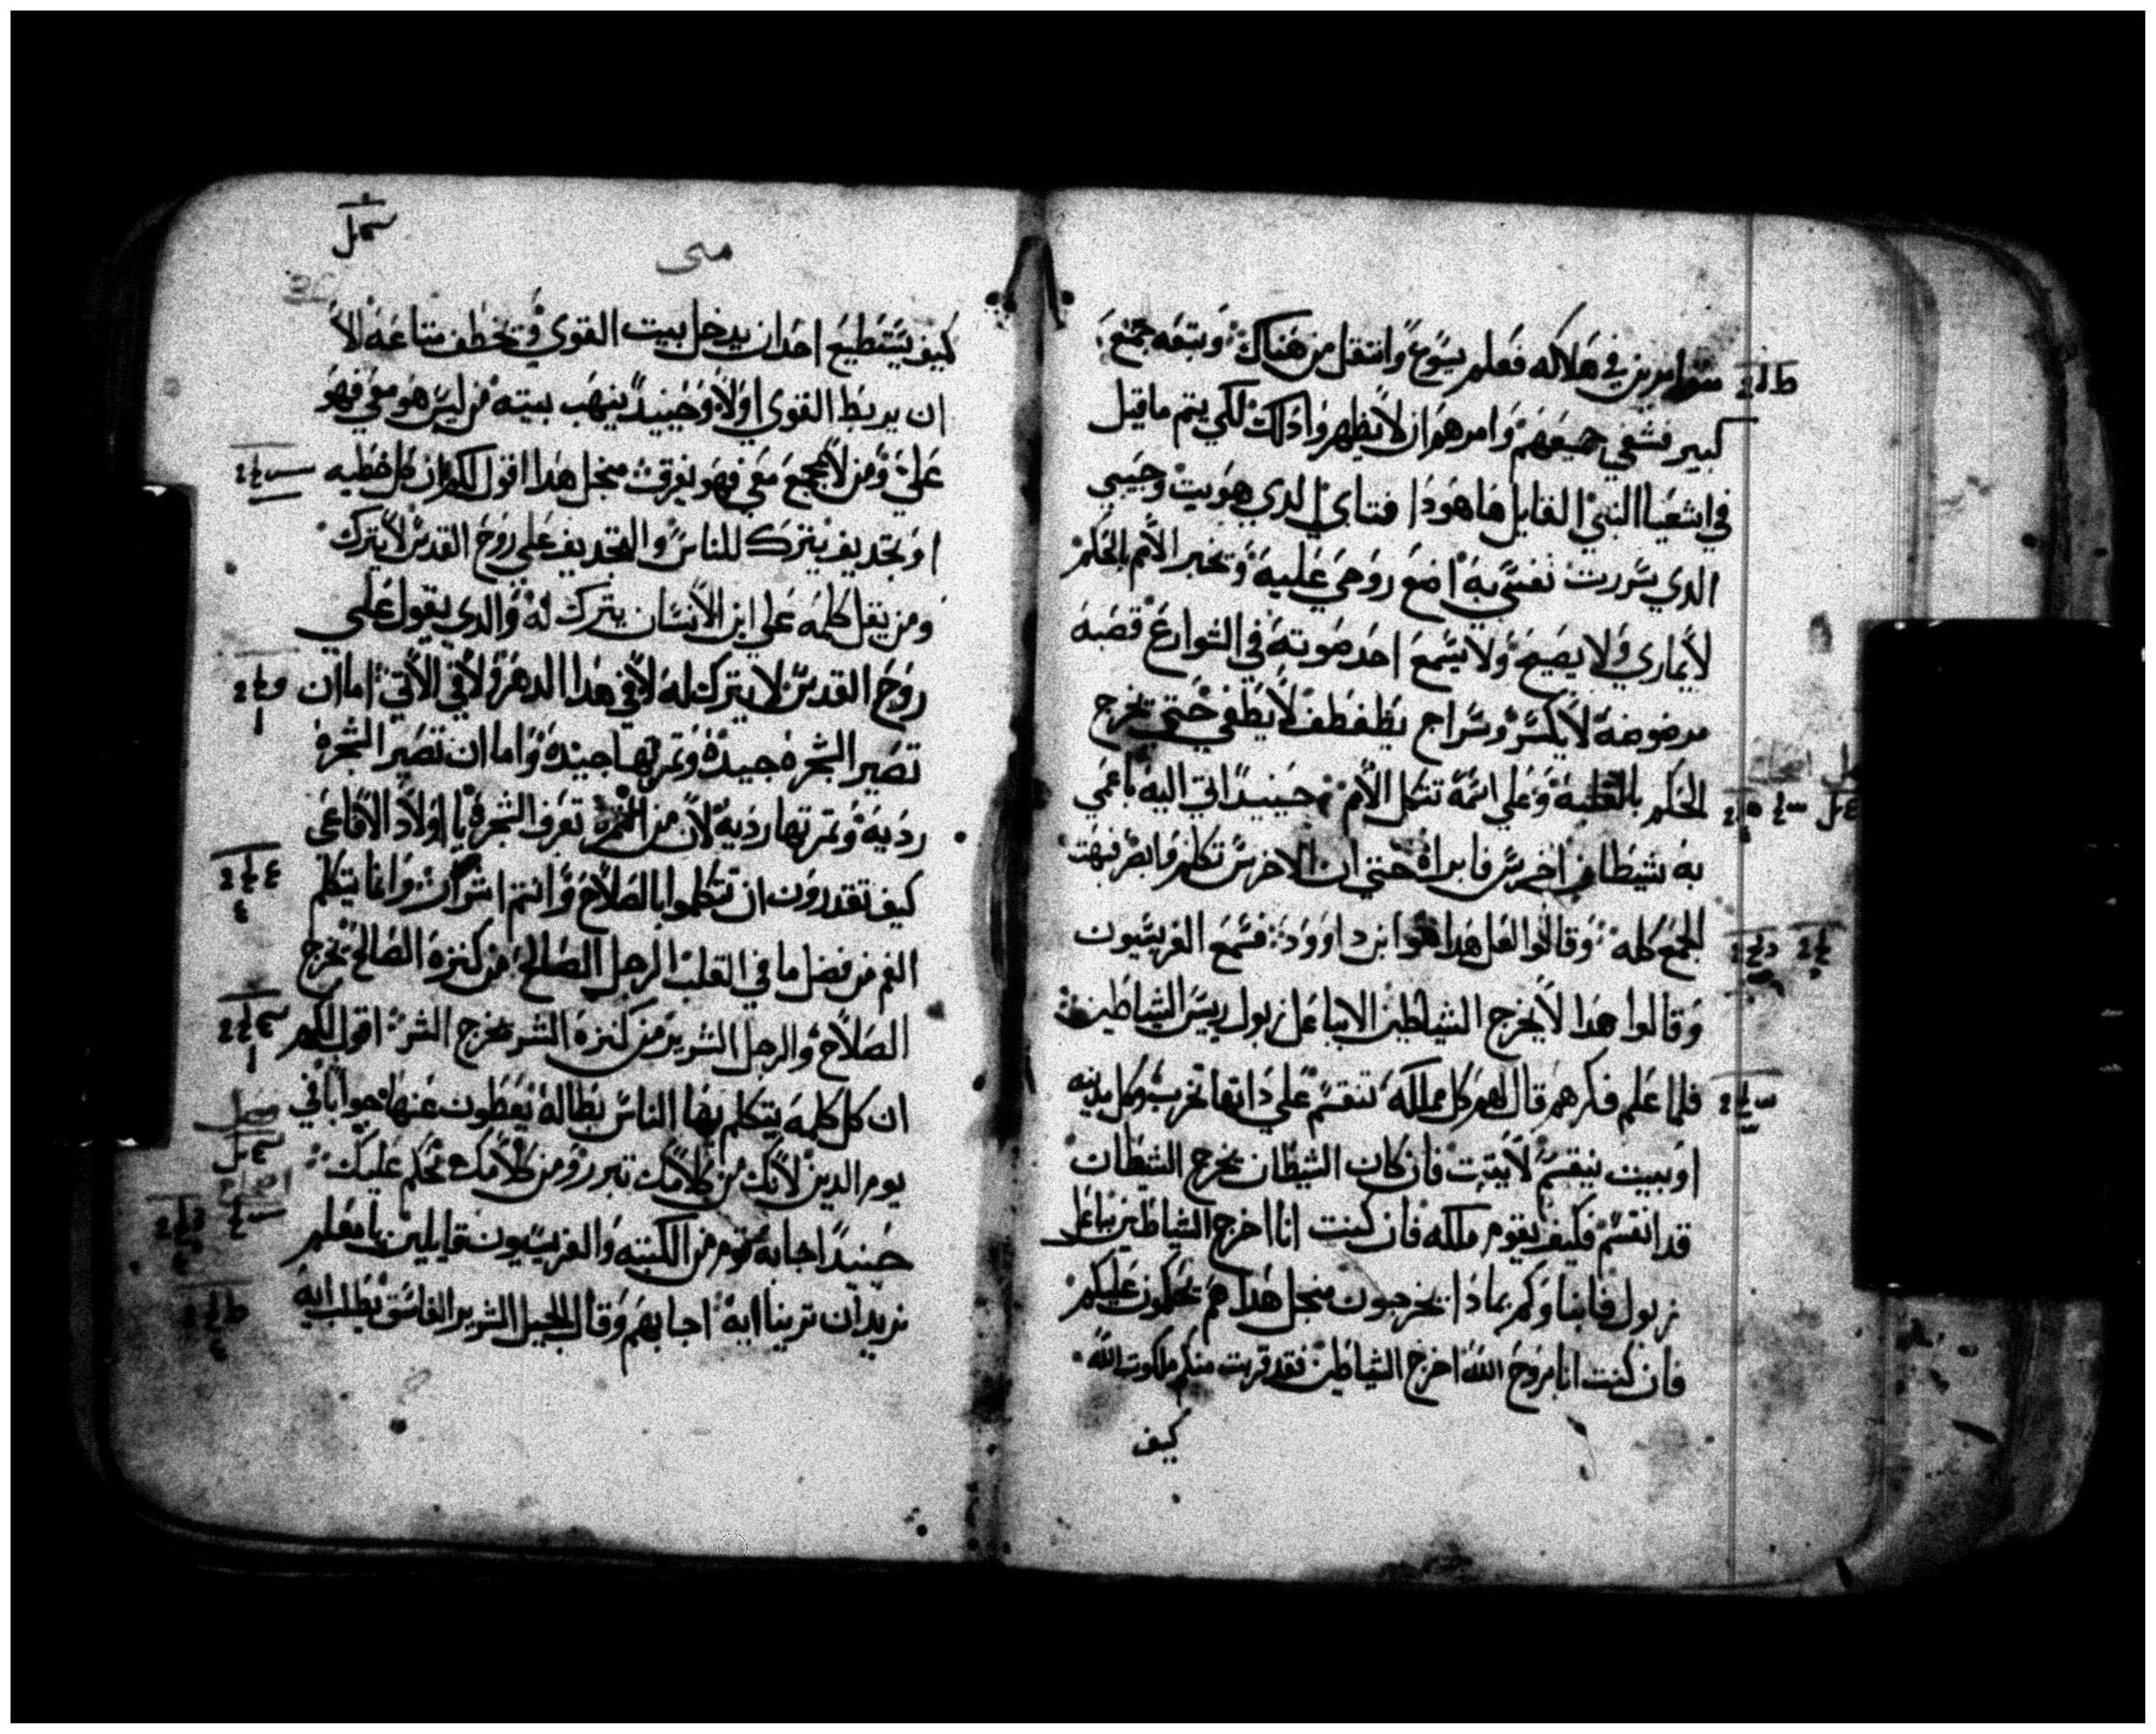 متوامرين في هلاكه فعلم يسوع وانتقل من هناك وتبعه جمع
كبير فشفي جميعهم وامرهم ان لا يظهروا ذلك لكي يتم ما قيل
في اشعيا النبي القايل ها هودا فتاي الدي هويت وحبيبي
الدي سررت نفسي به اضع روحي عليه وتخبر الامم بالحكم
لا يماري ولا يصيح ولا يسمع احد صوته في الشوارع قصبه
مرضوضة لا يكسر وسراج يطفطف لا يطفي حتي يخرج
الحكم بالغلبة وعلي اسمه تتكل الامم حينيدا اتي اليه باعمي
به شيطان اخرس فابراه حتي ان الاخرس تكلم وابصر فبهت
الجمع كله وقالوا لعل هدا هو ابن داوود فسمع الفريسيون
وقالوا هدا لا يخرج الشياطين الا بباعل زبول ريس الشياطين
فلما علم فكرهم قال لهم كل مملكه تنقسم علي داتها تخرب وكل مدينه
او بيت ينقسم لا يثبت فان كان الشيطان يخرج الشيطان
قد انقسم فكيف يقوم ملكه فان كنت انا اخرج الشياطين بباعل
زبول فابناوكم بمادا يخرجون منجل هدا هم يحكمون عليكم
فان كنت انا بروح الله اخرج الشياطين فقد قربت منكم ملكوت الله
كيف
متى
كيف يستطيع احد ان يدخل بيت القوي ويخطف متاعه الا
ان يربط القوي اولا وحينيد ينهب بيته من ليس هو معي فهو
علي ومن لا يجمع معي فهو يفرق منجل هدا اقول لكم ان كل خطيه
او تجديف يترك للناس والتجديف علي روح القدس لا يترك
ومن يقل كلمه علي ابن الانسان يترك له والدي يقول علي
روح القدس لا يترك له لا في هدا الدهر ولا في الاتي اما ان
تصير الشجره جيدة وثمرتها جيدة واما ان تصير الشجرة
رديه وثمرتها رديه لان من الثمرة تعرف الشجرة يا اولاد الافاعي
كيف تقدرون ان تتكلموا بالصلاح وانتم اشرار وانما يتكلم
الفم من فضل ما في القلب الرجل الصالح من كنزه الصالح يخرج
الصلاح والرجل الشرير من كنزه الشر يخرج الشر اقول لكم
ان كل كلمه يتكلم بها الناس بطاله يعطون عنها جوابا في
يوم الدين لانك من كلامك تبرر ومن كلامك يحكم عليك
حينيدا اجابه قوم من الكتبه والفريسيون قايلين يا معلم
نريد ان ترينا ايه اجابهم وقال الجيل الشرير الفاسق يطلب ايه